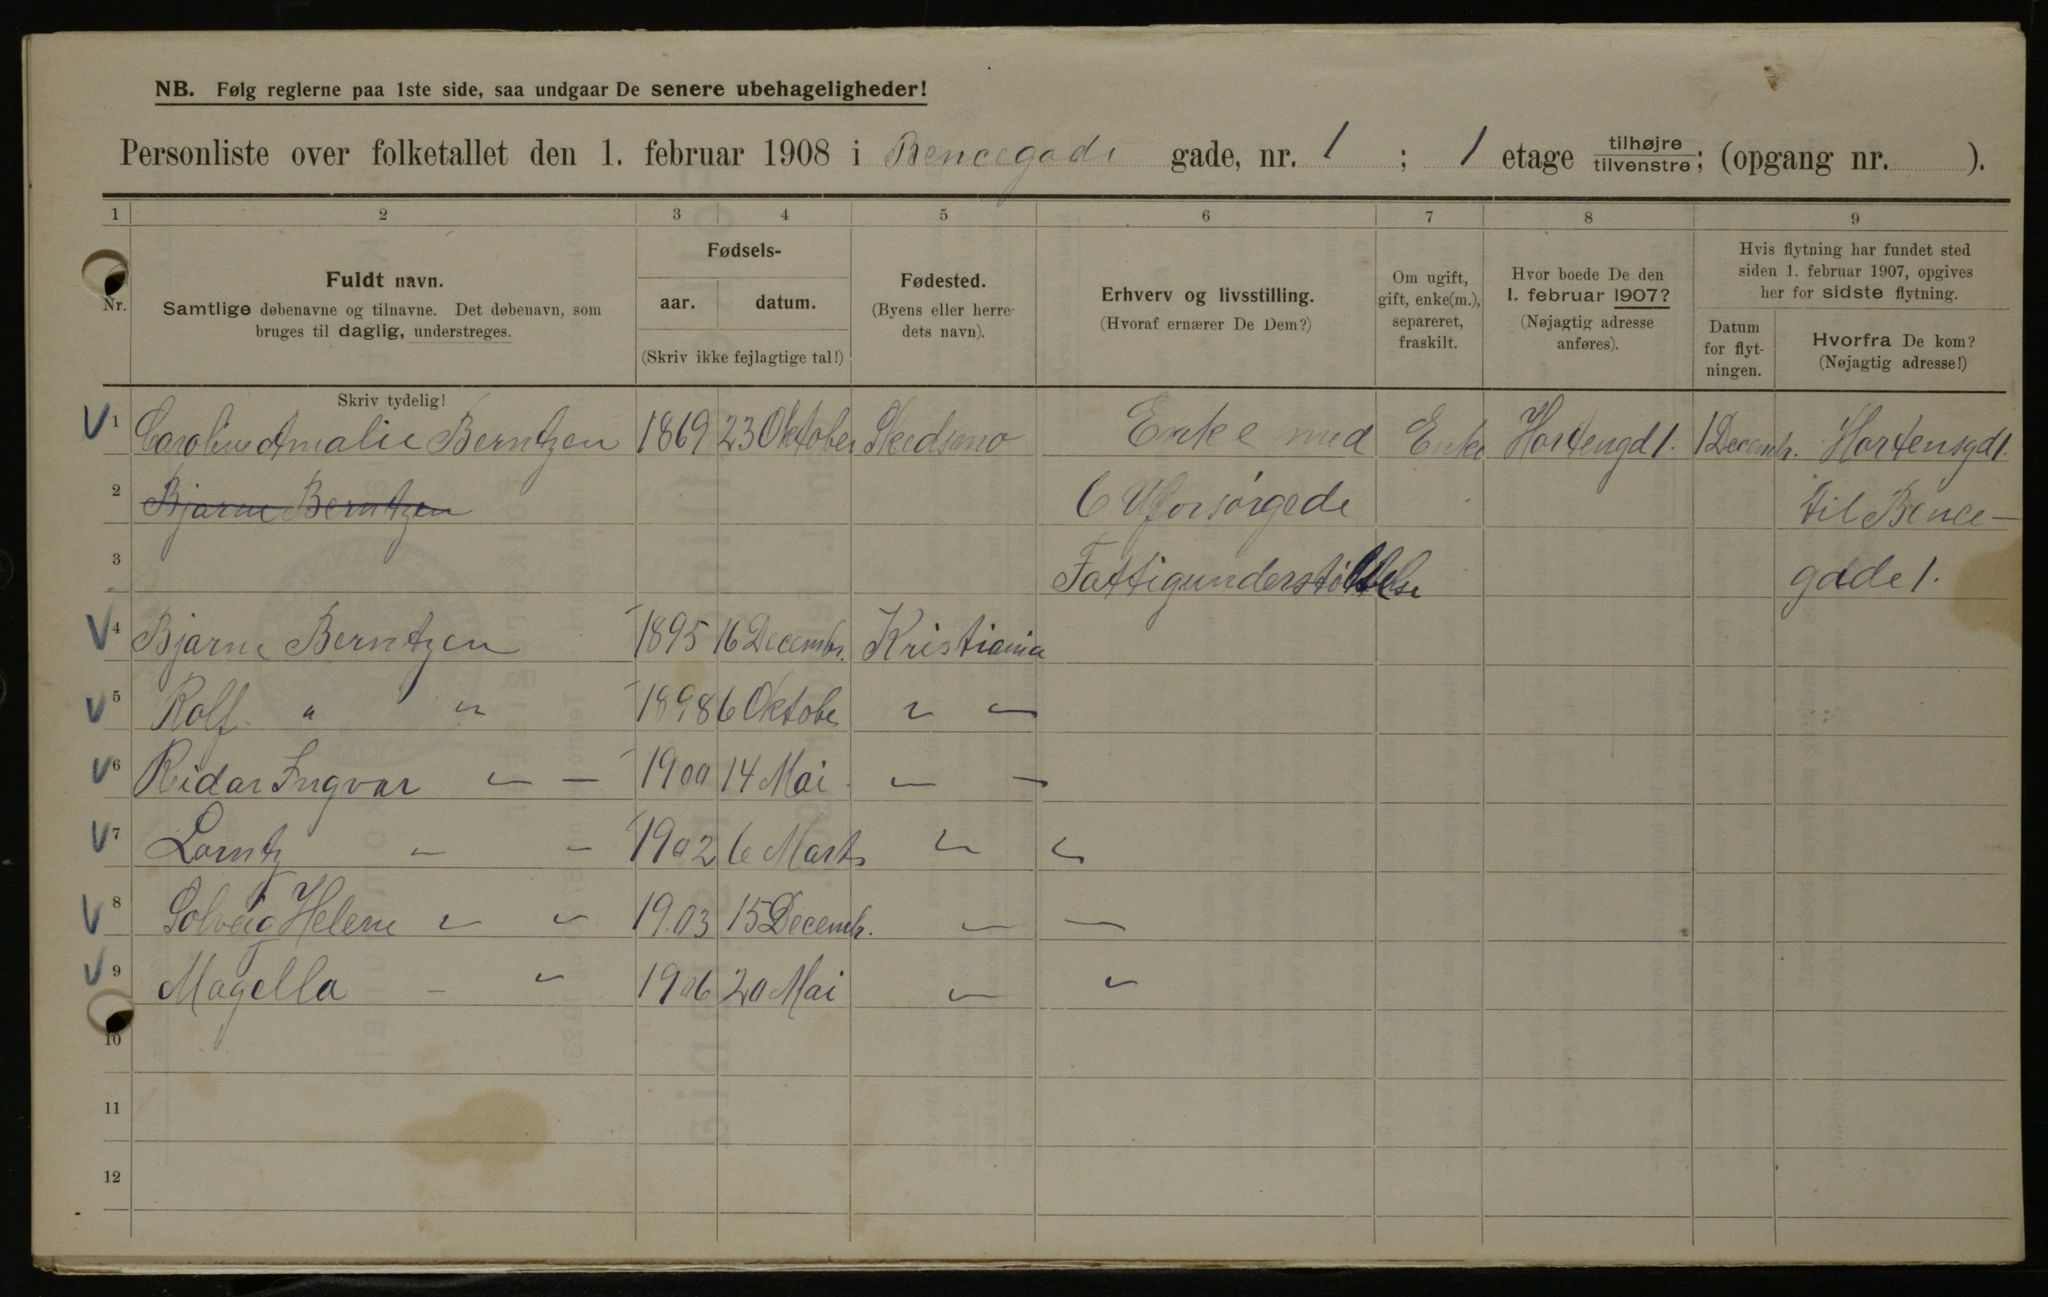 NB. Følg reglerne paa 1ste side, saa undgaar De senere ubehageligheder!
Personliste over folketallet den 1. februar 1908 i Bencegade gade, nr. 1 ; 1 etage tilhøjre tilvenstre; (opgang nr. ).
1 2 3 4 5 6 7 8 9
Nr.
Fuldt navn.
Samtlige døbenavne og tilnavne. Det døbenavn, som
bruges til daglig, understreges.
Skriv tydelig!
Fødsels-
aar. datum.
(Skriv ikke fejlagtige tal!)
Fødested.
(Byens eller herre-
dets navn).
Erhverv og livsstilling.
(Hvoraf ernærer De Dem?)
Om ugift,
gift, enke(m.),
separeret,
fraskilt.
Hvor boede De den
1. februar 1907?
(Nøjagtig adresse
anføres).
Hvis flytning har fundet sted
siden 1. februar 1907, opgives
her for sidste flytning.
Datum
for flyt-
ningen.
Hvorfra De kom?
(Nøjagtig adresse!)
V 1 Caroline Amalie Berntzen 1869 23 Oktober Skedsmo Enke med Enke Hortengd 1. 1 Decembr. Hortensgd 1.
2 Bjarne Berntzen 6 Uforsørgede til Bence-
3 Fattigunderstøttelse gade 1.
V 4 Bjarne Berntzen 1895 16 Decembr. Kristiania
V 5 Rolf " " 1898 6 Oktober " —
V 6 Reidar Ingvar " — 1900 14 Mai " —
V 7 Lorntz " — 1902 6 Marts " "
V 8 Solveig Helene " " 1903 15 Decembr. " —
V 9 Magella — " 1906 20 Mai " "
10
11
12